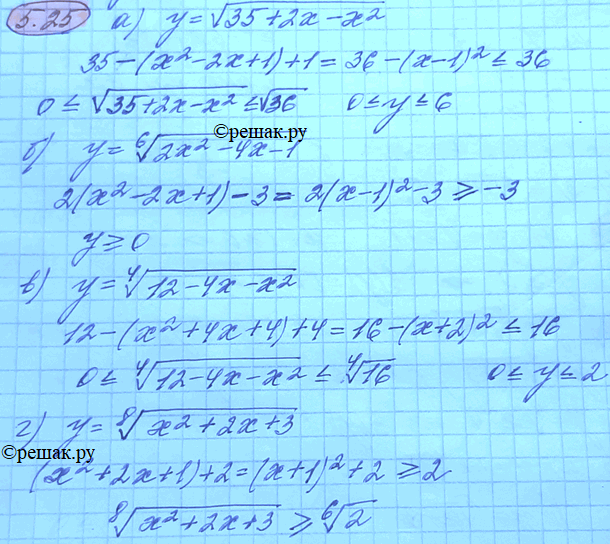 5.25 а) y = √(35 + 2x - x²)
35 - (x² - 2x + 1) + 1 = 36 - (x-1)² ≤ 36
0 ≤ √(35 + 2x - x²) ≤ √36 0 ≤ y ≤ 6
©решак.ру
б) y = ⁶√(2x² - 4x - 1)
2(x² - 2x + 1) - 3 = 2(x-1)² - 3 ≥ -3
y ≥ 0
в) y = ⁴√(12 - 4x - x²)
12 - (x² + 4x + 4) + 4 = 16 - (x+2)² ≤ 16
0 ≤ ⁴√(12 - 4x - x²) ≤ ⁴√16 0 ≤ y ≤ 2
г) y = ⁸√(x² + 2x + 3)
©решак.ру
(x² + 2x + 1) + 2 = (x+1)² + 2 ≥ 2
⁸√(x² + 2x + 3) ≥ ⁶√2